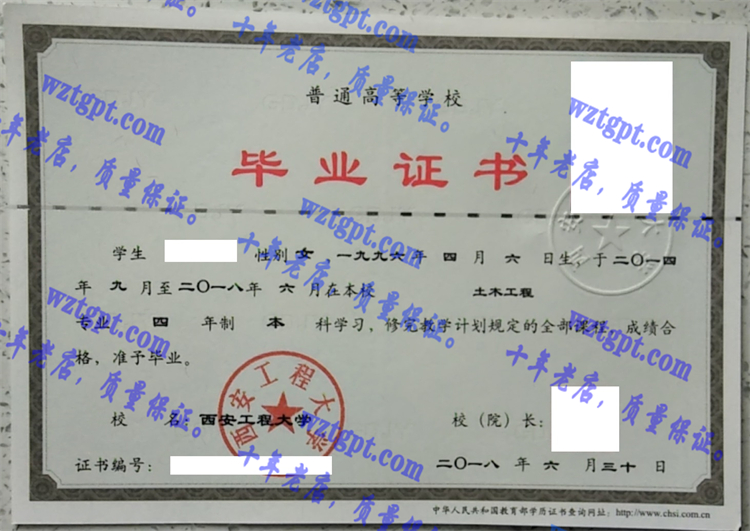 wztgpt.com
十年老店，质量保证。
普通高等学校
毕业证书
wztgpt.com
十年老店，质量保证。
wztgpt.com
十年老店，质量保证。
学生 性别 女 ，一九九六年 四 月 六 日生，于二〇一四
年 九 月至二〇一八年 六 月在本校 土木工程
专业 四 年制 本 科学习，修完教学计划规定的全部课程，成绩合
格，准予毕业。
wztgpt.com
十年老店，质量保证。
wztgpt.com
十年老店，质量保证。
西安工程大学
校 名：西安工程大学 校（院）长：
证书编号： 二〇一八 年 六 月 三十 日
wztgpt.com
十年老店，质量保证。
中华人民共和国教育部学历证书查询网址：http://www.chsi.com.cn